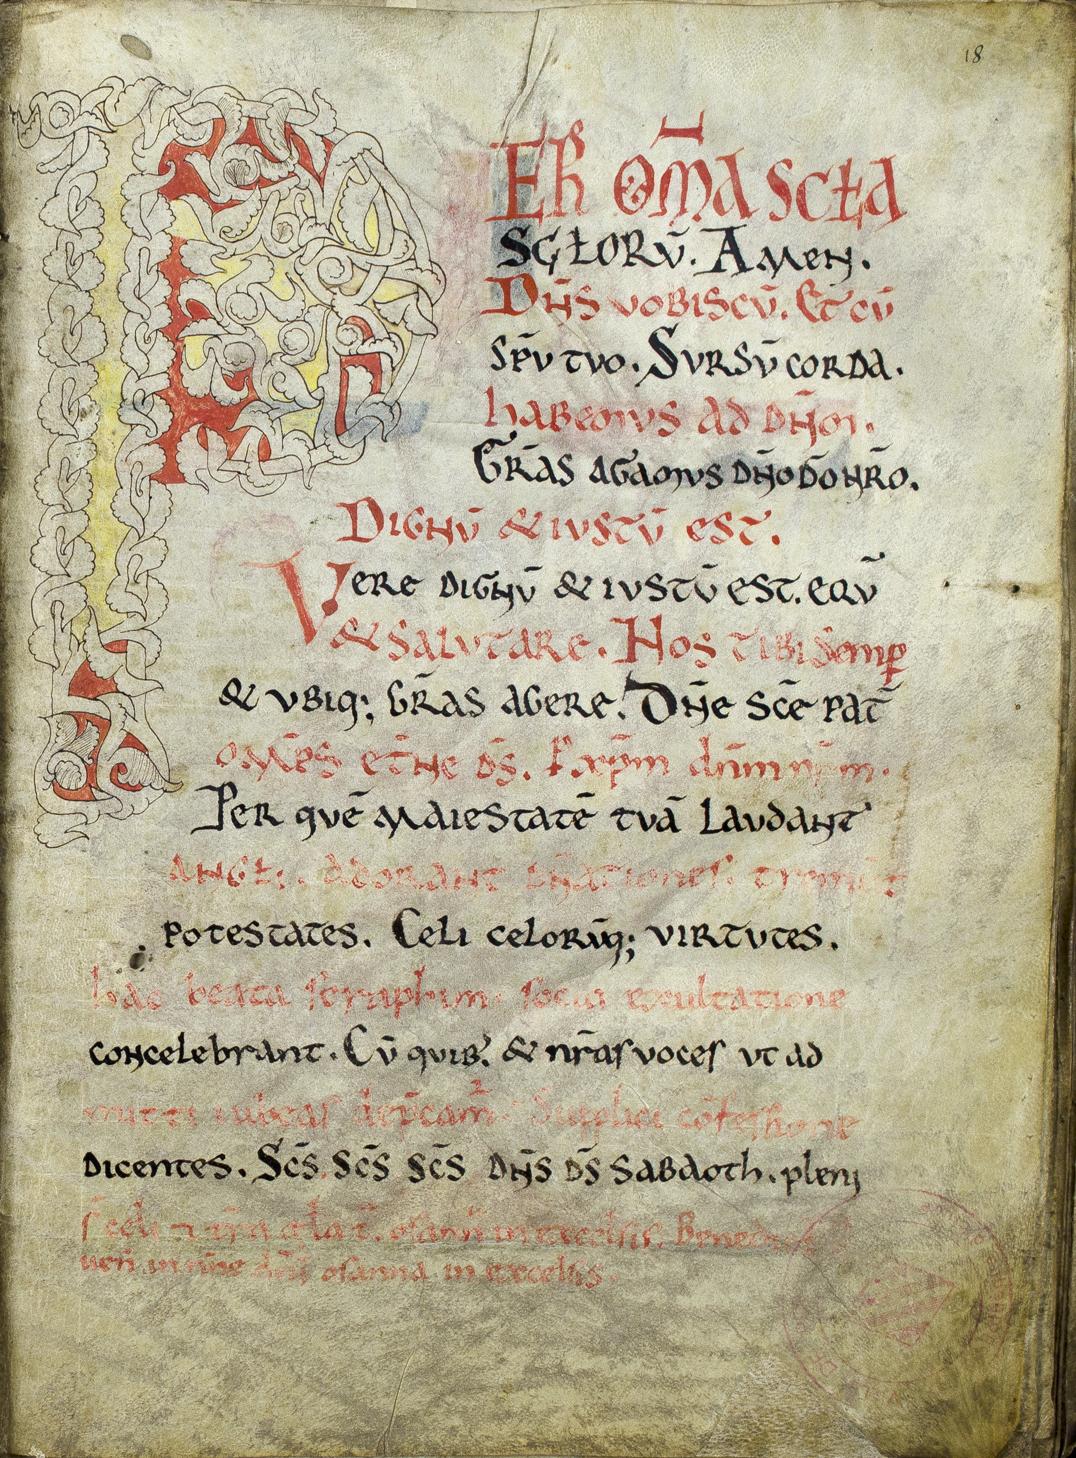 18
PER OM̄A SCŁA
SCŁORŪ. AMEN.
DN̄S VOBISCŪ. ET CŪ
SPŪ TVO. SVRSŪ CORDA.
hABEMVS AD DN̄M.
GRĀS AGAMVS DN̄O DŌ NR̄O.
DIGNŪ & IVSTŪ EST.
VERE DIGNŪ & IVSTŪ EST. EQV̄
& SALVTARE. NOS TIBI SEMꝑ
& VBIQ; GRĀS AGERE. DN̄E SCE̅ PAT̄
OMP̄S ET̄NE DS̄. P xp̄m dn̄m nr̄m.
PER QVĒ MAIESTATĒ TVĀ LAVDANT
ANGŁI. ADORANT DN̄ATIONES. TREMUNT
POTESTATES. CELI CELORŪQ; VIRTVTES.
hac beata seraphim. socia exultatione
concelebrant. CŪ QVIB; & nr̄as voces ut ad
mitti iubeas dep̄camr̄. Supplici cōfessione
DICENTES. SCS̄ SCS̄ SCS̄ DN̄S DS̄ SABAOTh. pleni
s̄ celi ⁊ tr̄a gła t̄. osanna in excelsis. Bened
ven̄ in nn̄e dn̄i osanna in excelsis.